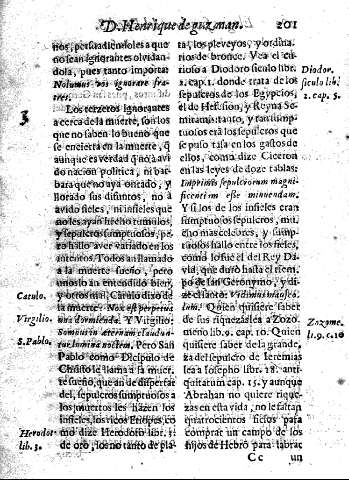 D. Henrique de guzman. 201
nos, persuadiendoles a que
no sean ignorantes olvidan-
dola, pues tanto importa:
Nolumus vos ignorare fra-
tres.
3 Los terzeros ignorantes
a cerca de la muerte, son los
que no saben lo bueno que
se encierra en la muerte, q̃
aunque es verdad q̃ no a avi
do nacion politica, ni bar-
bara que no aya onrado, y
llorado sus difuntos, no a
avido fieles, ni infieles que
no les ayan hecho tumulos,
y sepulcros sumptuosos, pe-
ro hallo aver variado en los
intentos. Todos an llamado
a la muerte sueño, pero
unos lo an entendido bien,
y otros mal, Catulo dizo de
la muerte: Nox est perpetua
una dormienda. Y Virgilio:
Somnus in aeternam claudun-
tur lumina noctem. Pero San
Pablo como Dicipulo de
Christo le llama a la muer-
te sueño, que an de dispertar
del, sepulcros sumptuosos a
los muertos les hazen los
infieles, los ricos Etiopes, co
mo dize Herodoto libr. 3.
de oro, los no tanto de pla-
Catulo.
Virgilio.
S. Pablo.
Herodot.
lib. 3.
ta, los pleveyos, y ordina-
rios de bronce. Vea el cu-
rioso a Diodoro siculo libr.
2. cap. 1. donde trata de los
sepulcros de los Egypcios,
el de Hefestion, y Reyna Se-
miramis: tanto, y tan sump-
tuoso era los sepulcros que
se puso tasa en los gastos de
ellos, como dize Ciceron
en las leyes de doze tablas:
Imprimis sepulcrorum magni-
ficentiam esse minuendam.
Y si los de infieles eran
sumptuosos sepulcros, mu-
cho mas celebres, y sump-
tuosos hallo entre los fieles,
como lo fue el del Rey Da-
vid, que duro hasta el tiem-
po de san Geronymo, y di-
ze el santo: Vidimus mauseo-
lum. Quien quisiere saber
de sus riquezas lea a Zozo-
meno lib. 9. cap. 10. Quien
quisiere saber de la grande-
za del sepulcro de Ieremias
lea a Iosepho libr. 18. anti-
quitatum cap. 15. y aunque
Abrahan no quiere rique-
zas en esta vida, no le faltan
quatrocientos siclos para
comprar un campo de los
hijos de Hebrõ para fabrac
Cc un
Diodor.
siculo lib.
2. cap. 5.
Zozome.
li. 9. c. 10